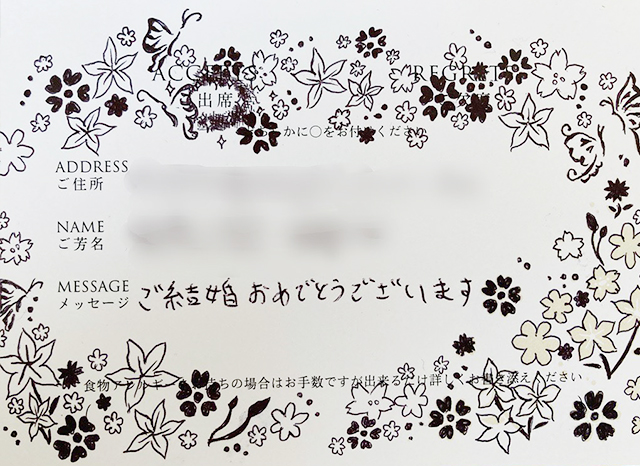 ACCEPTS REGRETS
出席
かに○をお付けください
ADDRESS
ご住所
NAME
ご芳名
MESSAGE
メッセージ ご結婚 おめでとうございます
食物ア ちの場合はお手数ですが出来るだけ詳しくお書き添えください